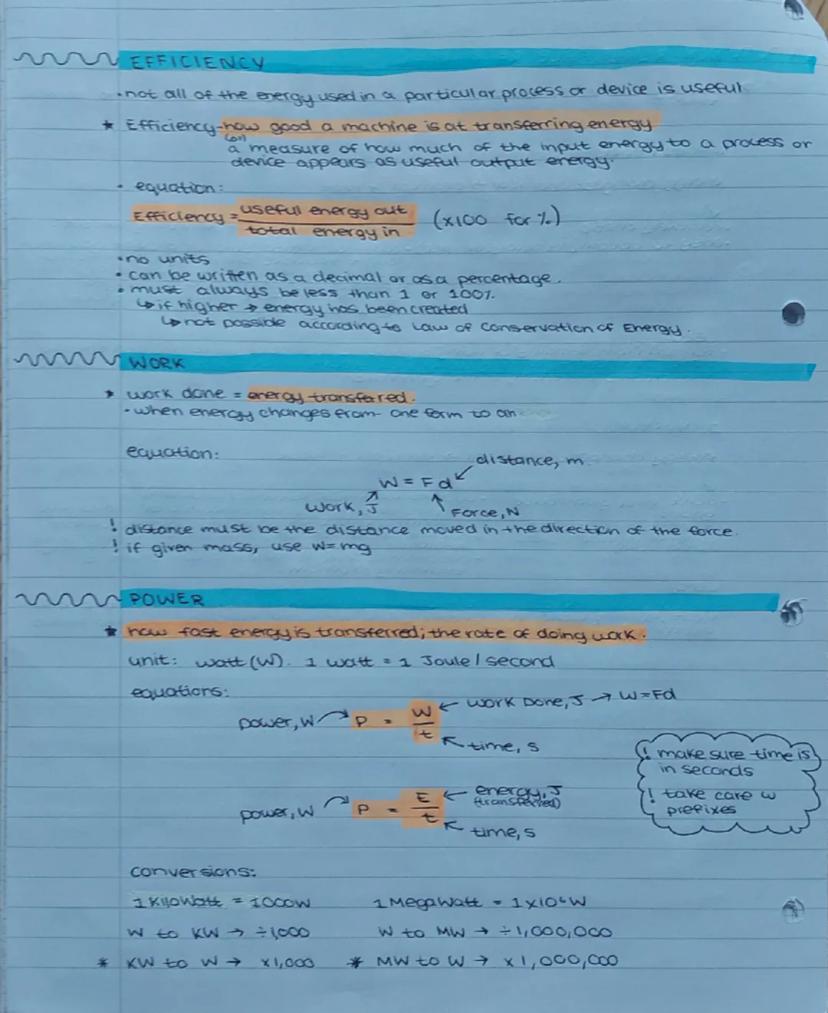 EFFICIENCY
• not all of the energy used in a particular process or device is useful
* Efficiency - how good a machine is at transferring energy
(or)
a measure of how much of the input energy to a process or
device appears as useful output energy.
• equation:
Efficiency = useful energy out / total energy in (x100 for %)
• no units
• can be written as a decimal or as a percentage.
• must always be less than 1 or 100%.
↳ if higher → energy has been created
↳ not possible according to Law of Conservation of Energy.
WORK
* work done = energy transferred.
• when energy changes from one form to an
equation:
distance, m
W = Fd
Work, J
Force, N
! distance must be the distance moved in the direction of the force.
! if given mass, use W=mg
POWER
* how fast energy is transferred; the rate of doing work.
unit: watt (W). 1 watt = 1 Joule / second
equations:
power, W → P = W/t ← Work Done, J → W=Fd
← time, s
! make sure time is
in seconds
! take care w
prefixes
power, W → P = E/t ← energy, J
(transferred)
← time, s
conversions:
1 KiloWatt = 1000W
1 MegaWatt = 1x10⁶W
W to KW → ÷1,000
W to MW → ÷1,000,000
* KW to W → x1,000
* MW to W → x1,000,000